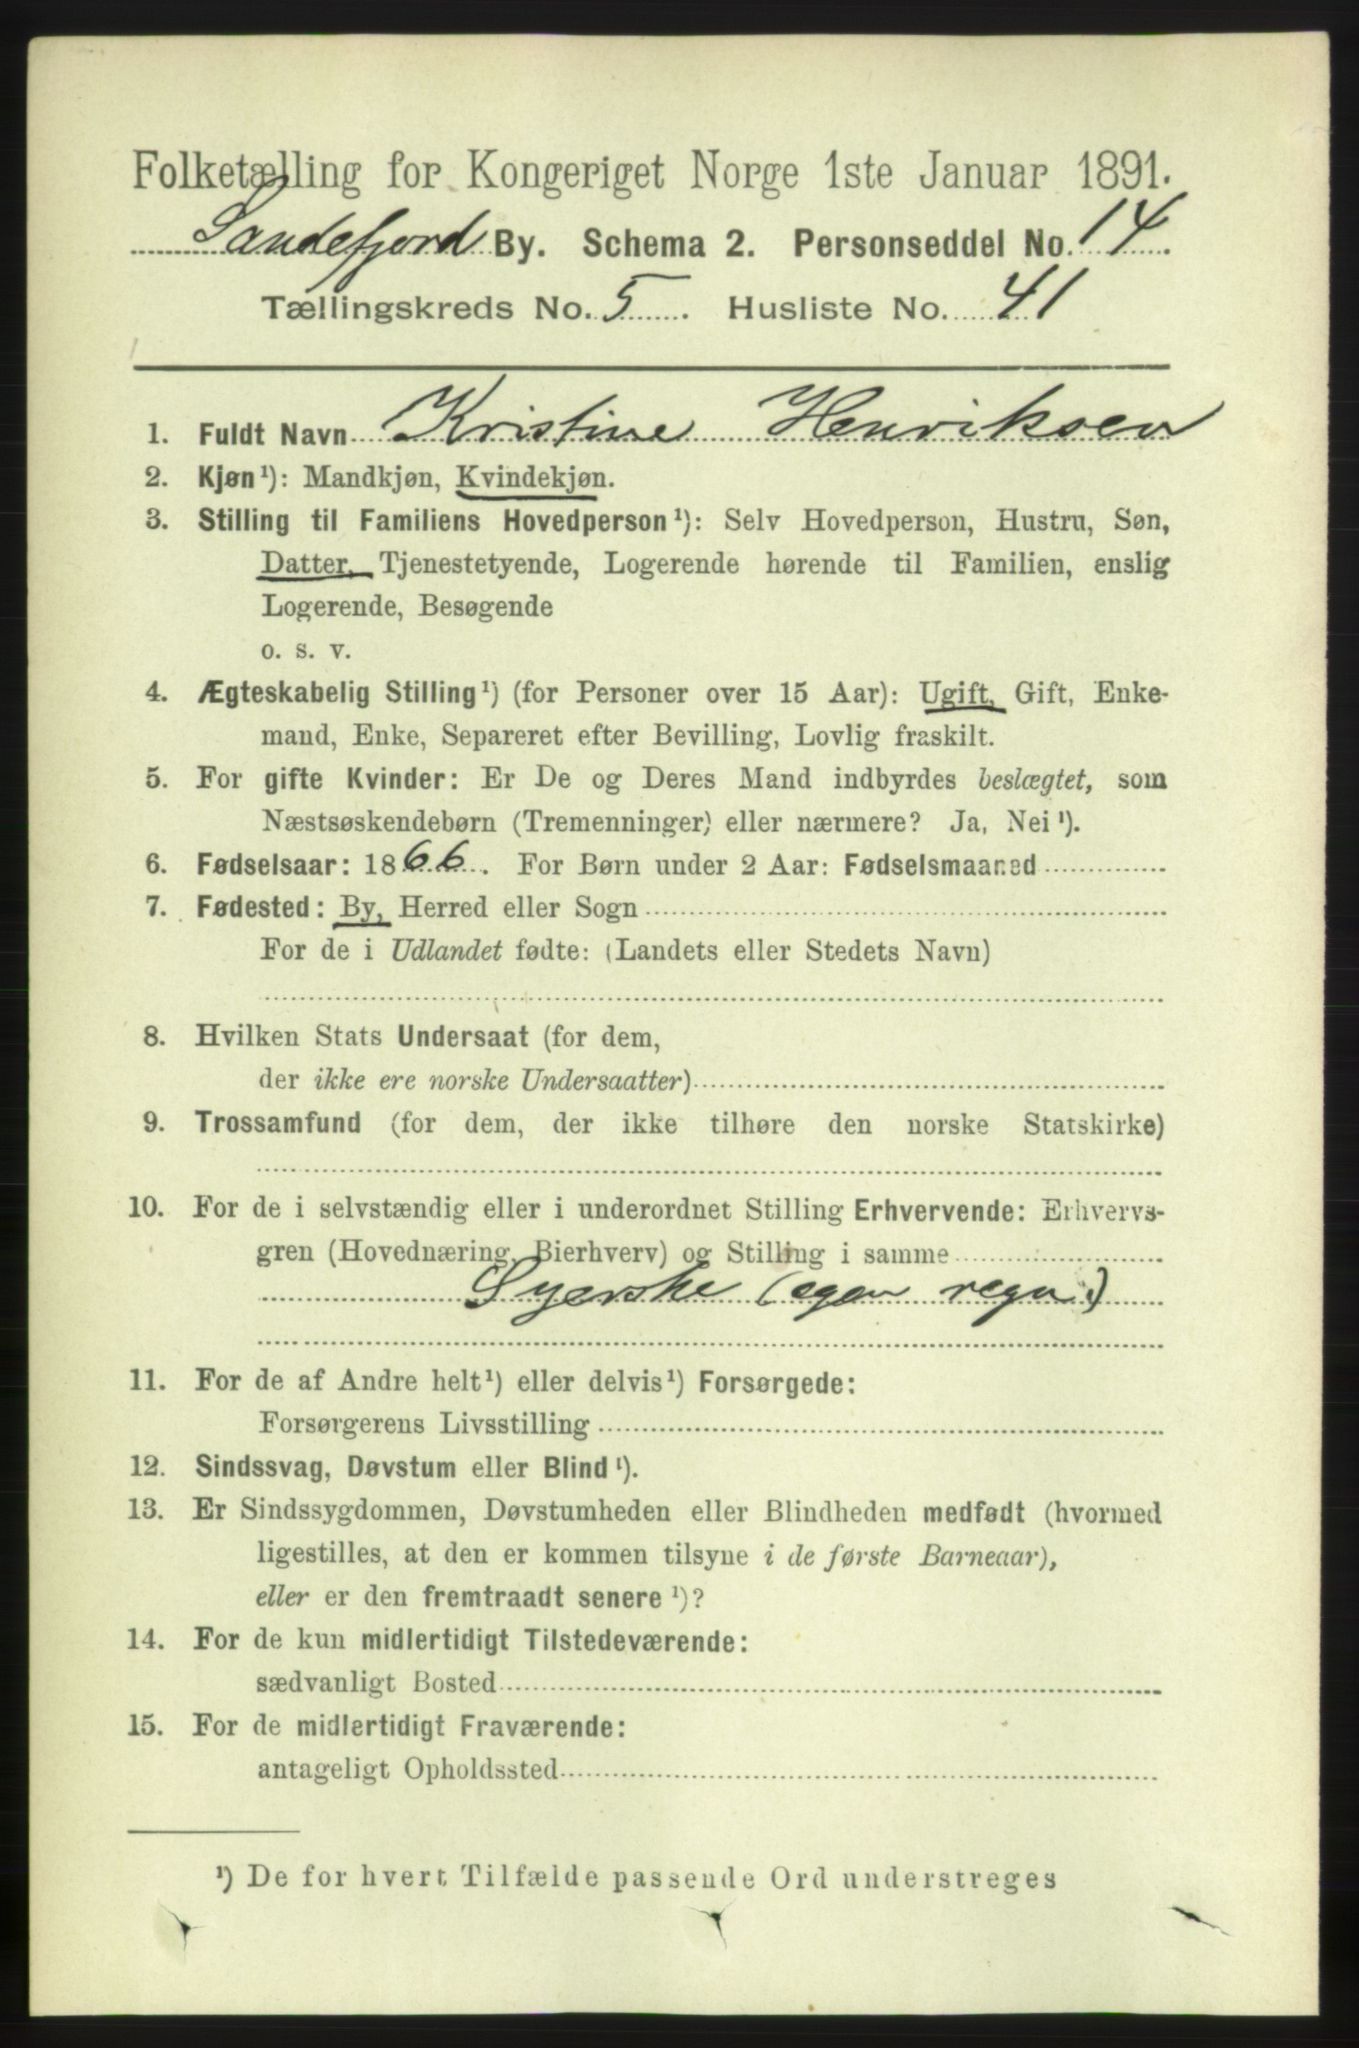 Folketælling for Kongeriget Norge 1ste Januar 1891.
Sandefjord By. Schema 2. Personseddel No. 14
Tællingskreds No. 5. Husliste No. 41
1. Fuldt Navn Kristine Henriksen
2. Kjøn¹): Mandkjøn, Kvindekjøn.
3. Stilling til Familiens Hovedperson¹): Selv Hovedperson, Hustru, Søn,
Datter, Tjenestetyende, Logerende hørende til Familien, enslig
Logerende, Besøgende
o. s. v.
4. Ægteskabelig Stilling¹) (for Personer over 15 Aar): Ugift, Gift, Enke-
mand, Enke, Separeret efter Bevilling, Lovlig fraskilt.
5. For gifte Kvinder: Er De og Deres Mand indbyrdes beslægtet, som
Næstsøskendebørn (Tremenninger) eller nærmere? Ja, Nei¹).
6. Fødselsaar: 1866. For Børn under 2 Aar: Fødselsmaaned
7. Fødested: By, Herred eller Sogn
For de i Udlandet fødte: (Landets eller Stedets Navn)
8. Hvilken Stats Undersaat (for dem,
der ikke ere norske Undersaatter)
9. Trossamfund (for dem, der ikke tilhøre den norske Statskirke)
10. For de i selvstændig eller i underordnet Stilling Erhvervende: Erhvervs-
gren (Hovednæring, Bierhverv) og Stilling i samme
Syerske (egen regn.)
11. For de af Andre helt¹) eller delvis¹) Forsørgede:
Forsørgerens Livsstilling
12. Sindssvag, Døvstum eller Blind¹).
13. Er Sindssygdommen, Døvstumheden eller Blindheden medfødt (hvormed
ligestilles, at den er kommen tilsyne i de første Barneaar),
eller er den fremtraadt senere¹)?
14. For de kun midlertidigt Tilstedeværende:
sædvanligt Bosted
15. For de midlertidigt Fraværende:
antageligt Opholdssted
¹) De for hvert Tilfælde passende Ord understreges